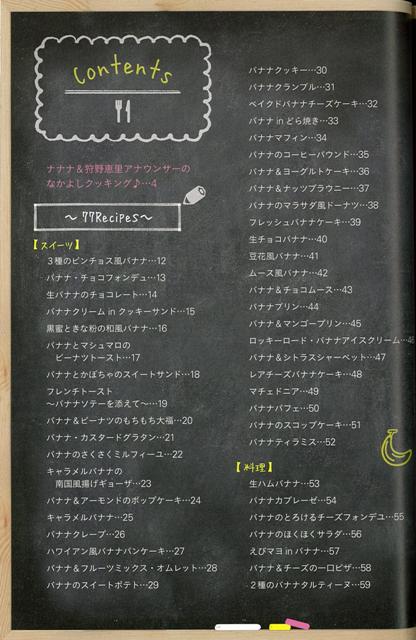 Contents
ナナナ＆狩野恵里アナウンサーの
なかよしクッキング♪…4
～ 77Recipes～
【スイーツ】
3種のピンチョス風バナナ…12
バナナ・チョコフォンデュ…13
生バナナのチョコレート…14
バナナクリーム in クッキーサンド…15
黒蜜ときな粉の和風バナナ…16
バナナとマシュマロの
ピーナツトースト…17
バナナとかぼちゃのスイートサンド…18
フレンチトースト
～バナナソテーを添えて～…19
バナナ＆ピーナツのもちもち大福…20
バナナ・カスタードグラタン…21
バナナのさくさくミルフィーユ…22
キャラメルバナナの
南国風揚げギョーザ…23
バナナ＆アーモンドのポップケーキ…24
キャラメルバナナ…25
バナナクレープ…26
ハワイアン風バナナパンケーキ…27
バナナ＆フルーツミックス・オムレット…28
バナナのスイートポテト…29
バナナクッキー…30
バナナクランブル…31
ベイクドバナナチーズケーキ…32
バナナ in どら焼き…33
バナナマフィン…34
バナナのコーヒーパウンド…35
バナナ＆ヨーグルトケーキ…36
バナナ＆ナッツブラウニー…37
バナナのマラサダ風ドーナツ…38
フレッシュバナナケーキ…39
生チョコバナナ…40
豆花風バナナ…41
ムース風バナナ…42
バナナ＆チョコムース…43
バナナプリン…44
バナナ＆マンゴープリン…45
ロッキーロード・バナナアイスクリーム…46
バナナ＆シトラスシャーベット…47
レアチーズバナナケーキ…48
マチェドニア…49
バナナパフェ…50
バナナのスコップケーキ…51
バナナティラミス…52
【料理】
生ハムバナナ…53
バナナカプレーゼ…54
バナナのとろけるチーズフォンデュ…55
バナナのほくほくサラダ…56
えびマヨ in バナナ…57
バナナ＆チーズの一口ピザ…58
2種のバナナタルティーヌ…59